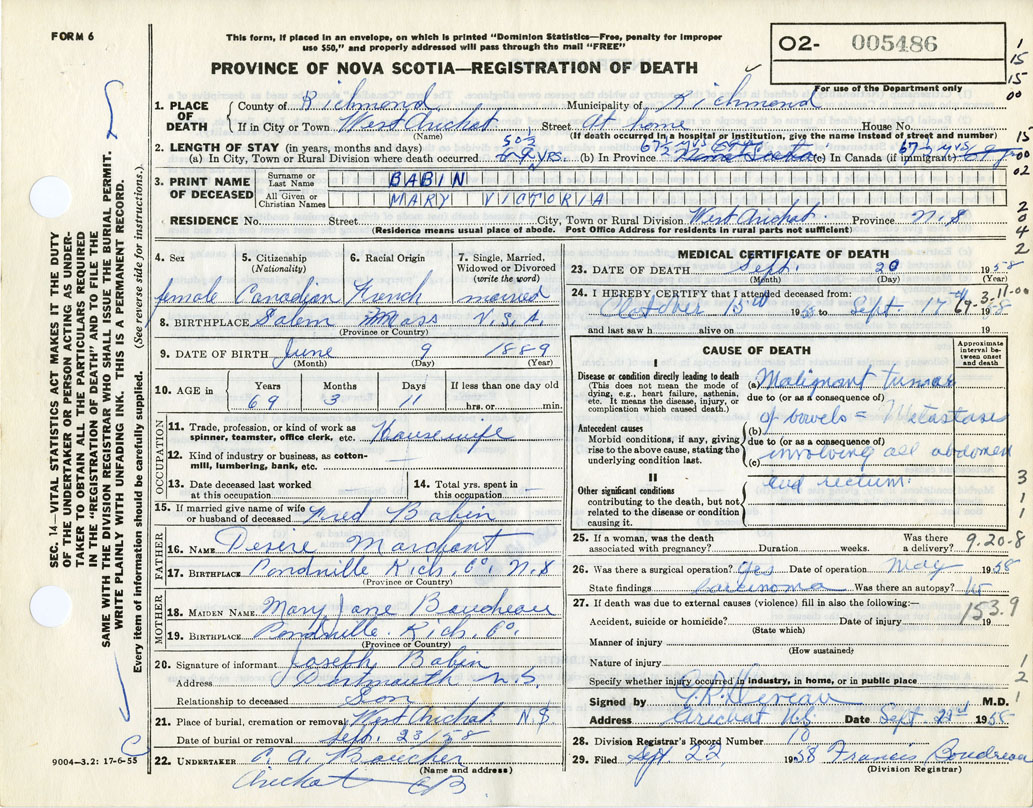 FORM 6
This form, if placed in an envelope, on which is printed "Dominion Statistics—Free, penalty for improper
use $50," and properly addressed will pass through the mail "FREE"
O2- 005486
For use of the Department only
PROVINCE OF NOVA SCOTIA—REGISTRATION OF DEATH
1. PLACE OF DEATH
County of Richmond Municipality of Richmond
If in City or Town West Arichat Street At home House No.
(Name) (If death occurred in a hospital or institution, give the name instead of street and number)
2. LENGTH OF STAY (in years, months and days)
(a) In City, Town or Rural Division where death occurred 50½ yrs. (b) In Province 67½ yrs Nova Scotia (c) In Canada (if immigrant) 67½ yrs
3. PRINT NAME OF DECEASED
Surname or Last Name BABIN
All Given or Christian Names MARY VICTORIA
RESIDENCE No. Street City, Town or Rural Division West Arichat Province N.S
(Residence means usual place of abode. Post Office Address for residents in rural parts not sufficient)
4. Sex 5. Citizenship (Nationality) 6. Racial Origin 7. Single, Married, Widowed or Divorced (write the word)
female Canadian French married
8. BIRTHPLACE Salem Mass U.S.A.
(Province or Country)
9. DATE OF BIRTH June 9 1889
(Month) (Day) (Year)
10. AGE in Years Months Days If less than one day old
69 3 11 hrs. or min.
OCCUPATION
11. Trade, profession or kind of work as spinner, teamster, office clerk, etc. Housewife
12. Kind of industry or business, as cotton-mill, lumbering, bank, etc. —
13. Date deceased last worked at this occupation
14. Total yrs. spent in this occupation —
15. If married give name of wife or husband of deceased Fred Babin
FATHER
16. NAME Desire Marchant
17. BIRTHPLACE Pondville Rich. Co. N.S
(Province or Country)
MOTHER
18. MAIDEN NAME Mary Jane Boudreau
19. BIRTHPLACE Pondville Rich. Co.
(Province or Country)
20. Signature of informant Joseph Babin
Address Dartmouth N.S.
Relationship to deceased Son
21. Place of burial, cremation or removal West Arichat N.S
Date of burial or removal Sept. 23/58
22. UNDERTAKER C. A. Boucher
(Name and address)
Arichat CB
9004—3.2: 17-6-55
MEDICAL CERTIFICATE OF DEATH
23. DATE OF DEATH Sept. 20 1958
(Month) (Day) (Year)
24. I HEREBY CERTIFY that I attended deceased from:
October 15th 1955 to Sept. 17th 1958
69-3-11-00
and last saw h alive on 19
CAUSE OF DEATH
Approximate interval between onset and death
I
Disease or condition directly leading to death
(This does not mean the mode of dying, e.g., heart failure, asthenia, etc. It means the disease, injury, or complication which caused death.)
(a) Malignant tumor
due to (or as a consequence of)
of bowels = Metastases
Antecedent causes
Morbid conditions, if any, giving rise to the above cause, stating the underlying condition last.
(b)
due to (or as a consequence of)
involving all abdomen
(c)
and rectum.
II
Other significant conditions
contributing to the death, but not related to the disease or condition causing it.
25. If a woman, was the death associated with pregnancy? Duration weeks. Was there a delivery?
9.20-8
26. Was there a surgical operation? Yes Date of operation May 1958
State findings carcinoma Was there an autopsy? No
27. If death was due to external causes (violence) fill in also the following:—
153.9
Accident, suicide or homicide? Date of injury 19
(State which)
Manner of injury
(How sustained)
Nature of injury
Specify whether injury occurred in industry, in home, or in public place
Signed by M.D.
Address Arichat N.S. Date Sept. 21st 1958
28. Division Registrar's Record Number 10
29. Filed Sept 22 1958 Francis Boudreau
(Division Registrar)
SEC. 14—VITAL STATISTICS ACT MAKES IT THE DUTY
OF THE UNDERTAKER OR PERSON ACTING AS UNDER-
TAKER TO OBTAIN ALL THE PARTICULARS REQUIRED
IN THE "REGISTRATION OF DEATH" AND TO FILE THE
SAME WITH THE DIVISION REGISTRAR WHO SHALL ISSUE THE BURIAL PERMIT.
WRITE PLAINLY WITH UNFADING INK. THIS IS A PERMANENT RECORD.
Every item of information should be carefully supplied. (See reverse side for instructions.)
1
15
15
00
15
00
02
2
0
4
2
3
1
1
2
1